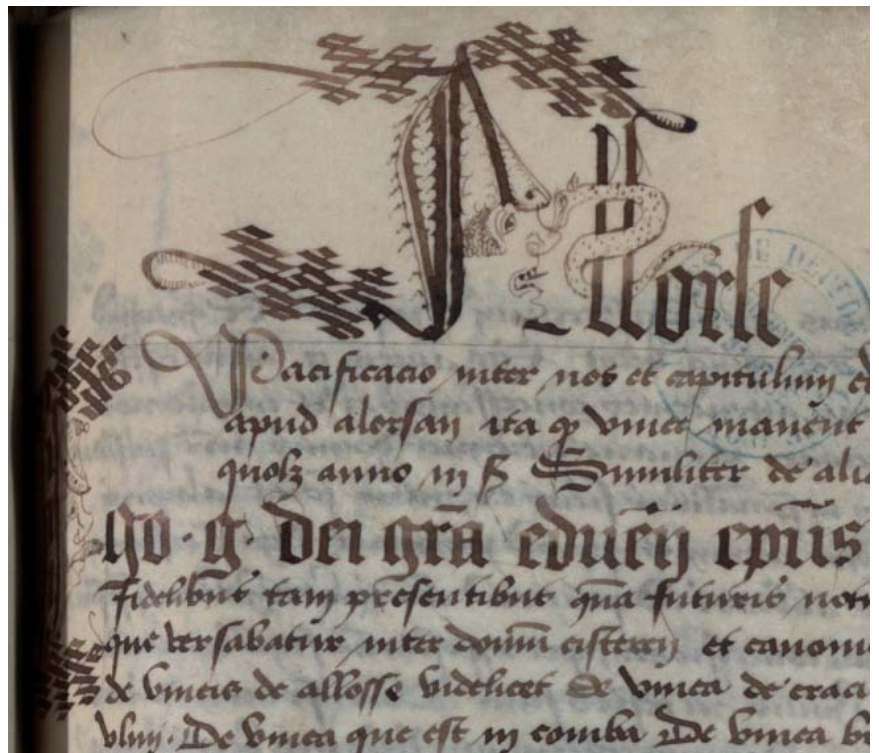 Allorse
Pacificacio inter nos et capitulum
apud alorsan ita qp vinee maneut
quolz anno in β Similiter de alia
go · g · dei gr̄a eduen̄ ep̄us
Fidelibus tam presentibus qua futuris
que versabatur inter domū cistercii et canoni
de vineis de allosse videlicet de vinea de
De vinea que est in comba De vinea